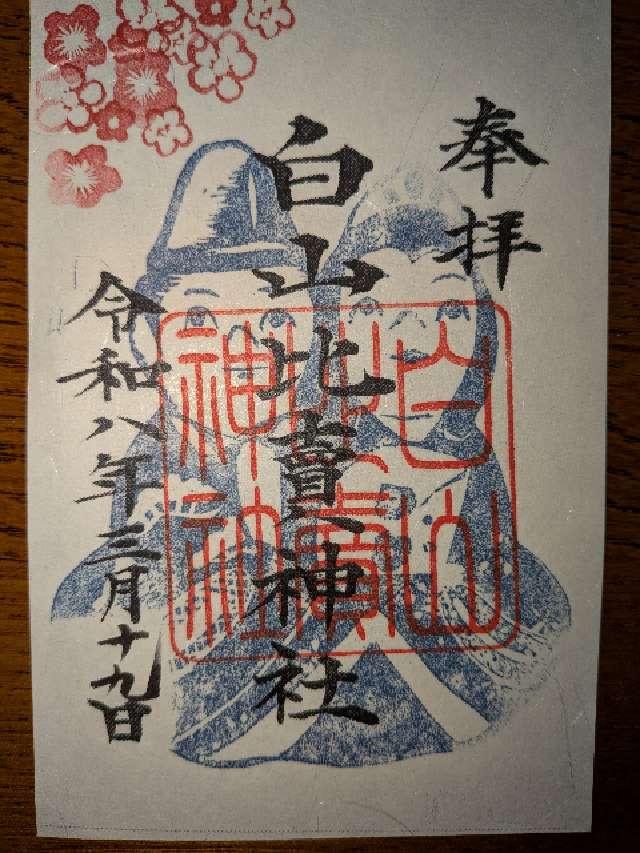 奉拝
白山比賣神社
白山比賣神社
令和八年三月十九日